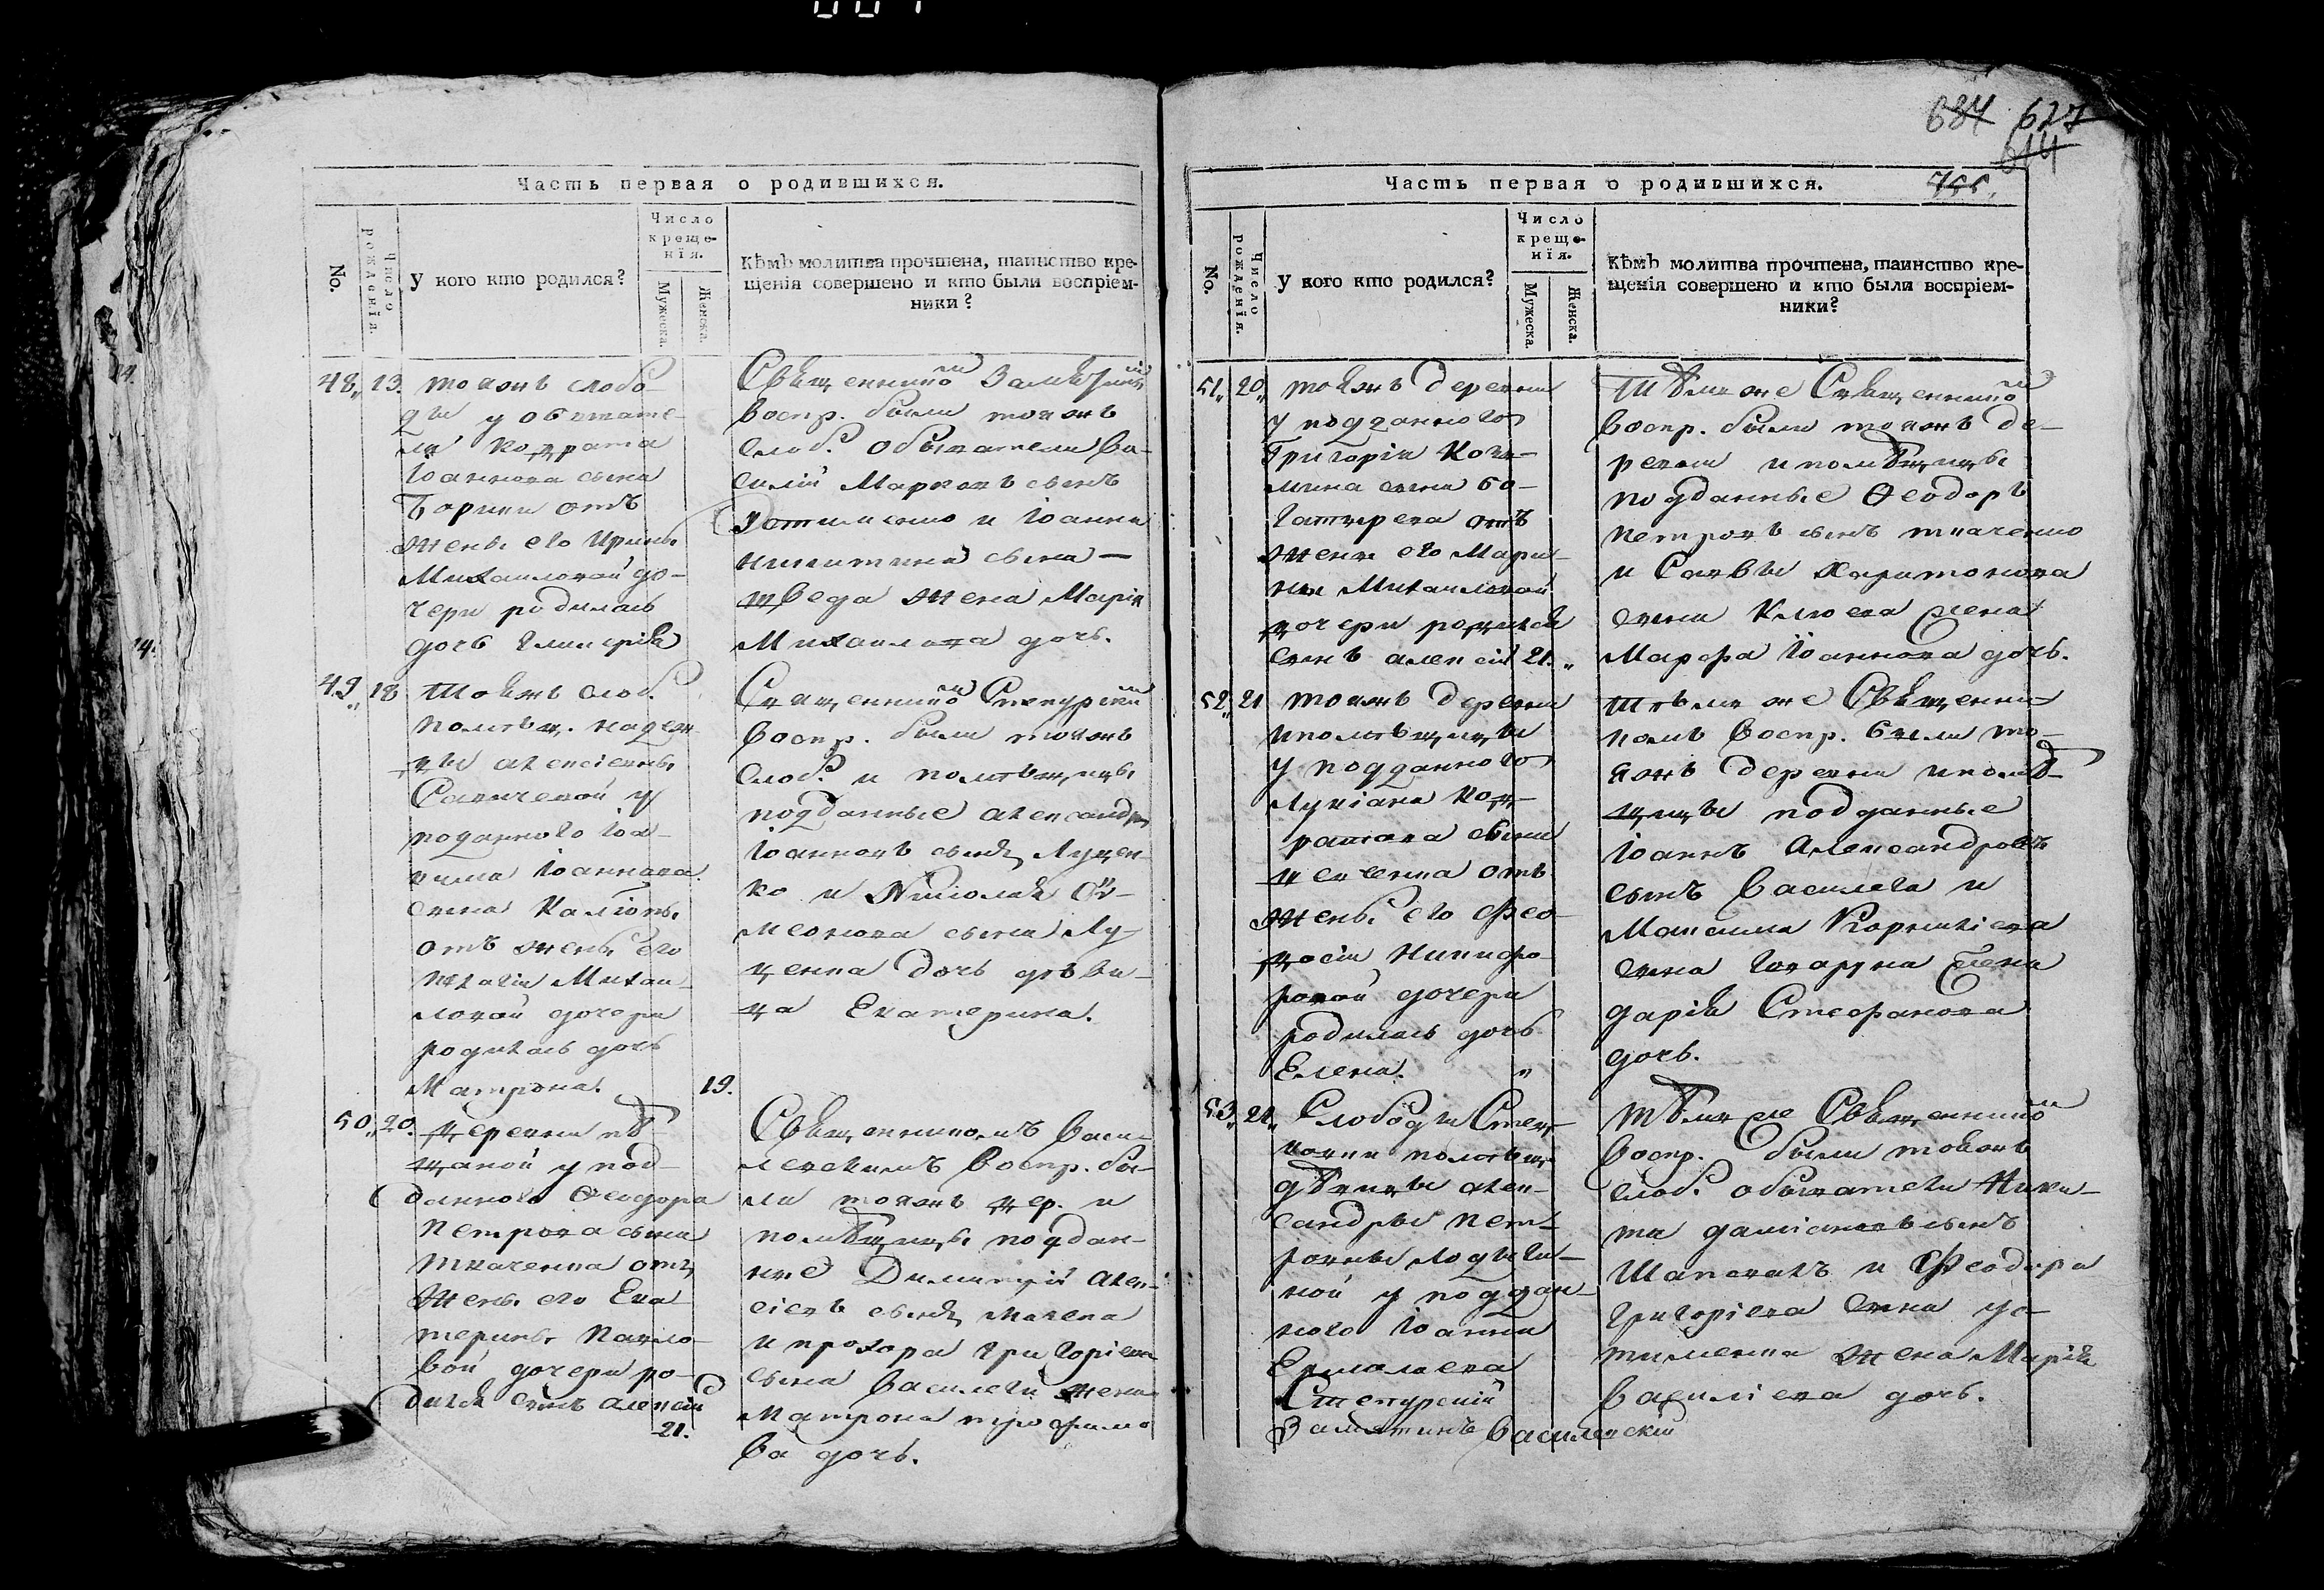 634 627
614
755.
Часть первая о родившихся.
No.
Число рожденія.
У кого кто родился?
Число
креще-
нія.
Мужеска.
Женска.
Кѣмъ молитва прочтена, таинство кре-
щенія совершено и кто были воспріем-
ники?
48,, 13. тояжъ слобо-
ды у обывате-
ля Кодрата
Іоаннова сына
отъ
жены его Ирины
Михаиловой до-
чери родилась
дочь Гликерія
Священнико
воспр. были тояжъ
слоб. обыватели Ва-
силій Марковъ сынъ
и Іоанна
Никитина сына
Шведа жена Марія
Михаилова дочь.
49,, 18 Тояжъ слоб.
помѣщ. Надеж-
ды Алексіевны
у
поданного Іоа-
кима Іоаннова
сына
отъ жены его
Пелагіи Михаи-
ловой дочери
родилась дочь
Матрона. 19.
Священнико Степурскй
воспр. были тояжъ
слоб. и помѣщицы
подданные Александръ
Іоанновъ сынъ Луцен-
ко и Николая Си-
меонова сына Лу-
ценка дочь дѣви-
ца Екатерина.
50,, 20. Деревни пѣ-
щаной у под-
данного Ѳеодора
Петрова сына
Ткаченка отъ
жены его Ека-
терины Павло-
вой дочери ро-
дился сынъ Алексій
21.
Священникомъ Васи-
левскимъ воспр. бы-
ли тояжъ дер. и
помѣщицы поддан-
ные Димитрій Алек-
сіевъ сынъ
и Прохора Григоріева
сына Василеги жена
Матрона Трофимо
ва дочь.
Часть первая о родившихся.
No.
Число рожденія.
У кого кто родился?
Число
креще-
нія.
Мужеска.
Женска.
Кѣмъ молитва прочтена, таинство кре-
щенія совершено и кто были воспріем-
ники?
51,, 20,, тояжъ деревни
у подданного
Григорія Козь-
мина сына Бо-
гатирева отъ
жены его Мари-
ны Михаиловой
дочери родился
сынъ Алексій 21.,,
Тѣмъ же Священнико
воспр. были тояжъ де-
ревни и помѣщицы
подданные Ѳеодоръ
Петровъ сынъ Ткаченко
и Саввы Харитонова
сына Клюева жена
Марфа Іоаннова дочь.
52,, 21 тояжъ деревни
и помѣщицы
у подданного
Лукіана Код-
ратова сына
отъ
жены его Фео-
досіи Никифо-
ровой дочери
родилась дочь
Елена. ,,
Тѣмъ же Священни-
комъ воспр. были то-
яжъ деревни и помѣ-
щицы подданные
Іоаннъ Александровъ
сынъ Василега и
Максима Корниліева
сына Гончаруна жена
Дарія Стефанова
дочь.
53,, 24,, Слободы
помѣщ.
дѣвицы Алек-
сандры Пет-
ровны Лодыги-
ной у поддан-
ного Іоанна
Ермолаева
Степурскій
Замятинъ Василевскій
Тѣмъ же Священнико
воспр. были тояжъ
слоб. обыватели Ники-
та Даміановъ сынъ
Шаповалъ и Феодора
Григоріева сына Ус-
тименка жена Марія
Василіева дочь.